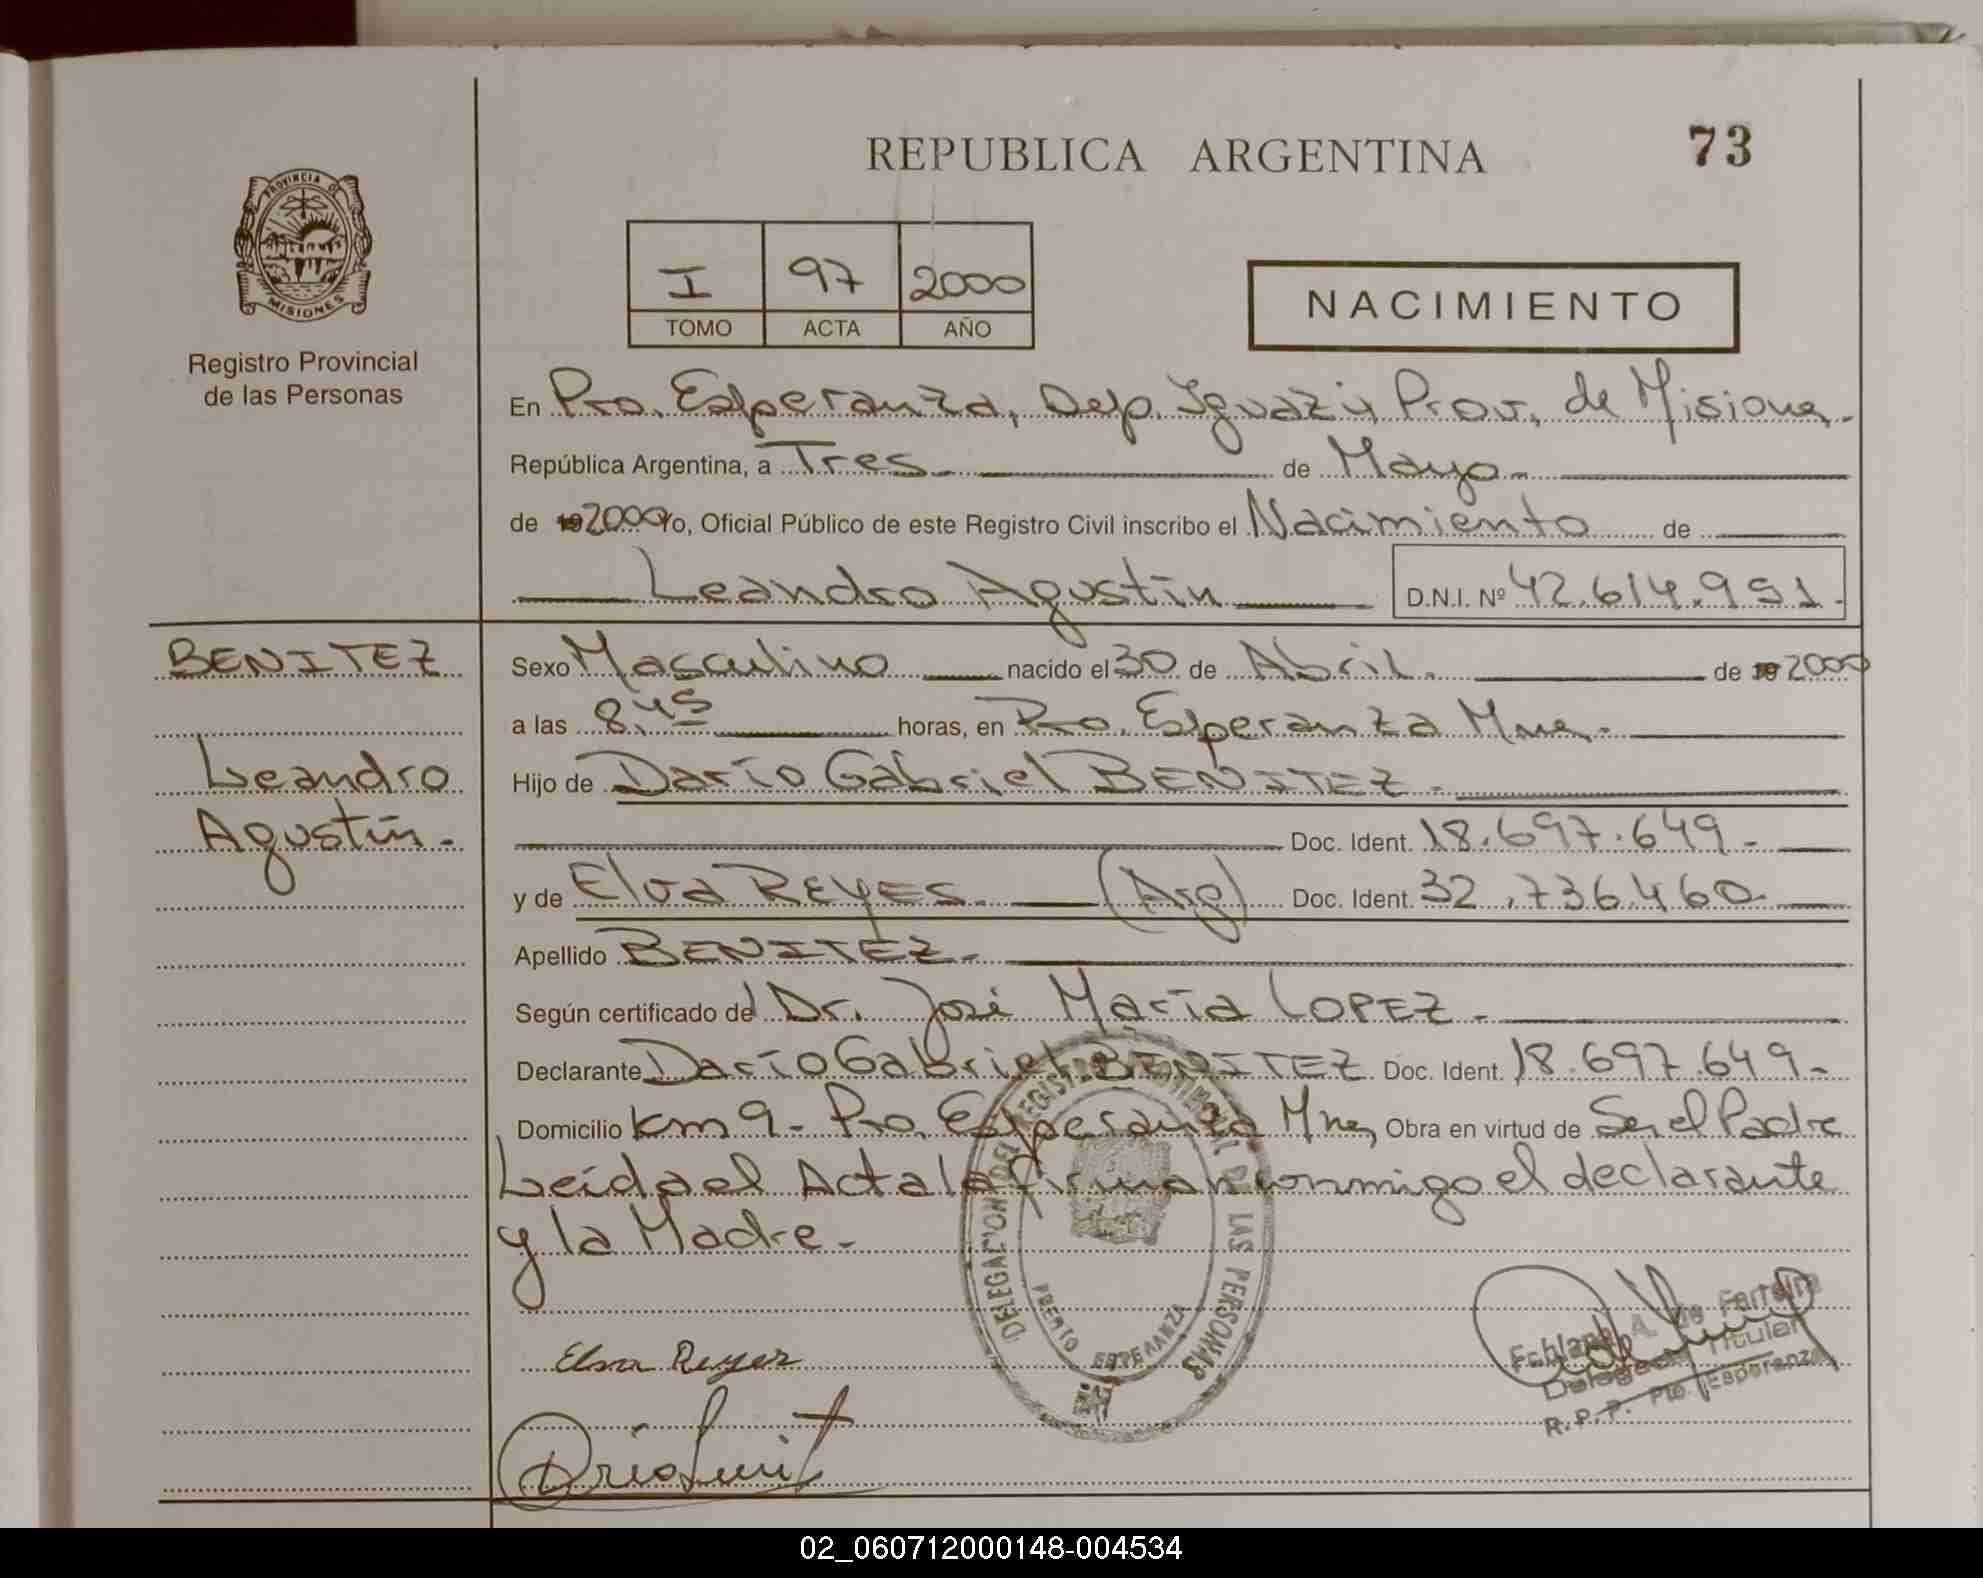 REPUBLICA ARGENTINA
73
PROVINCIA DE
MISIONES
Registro Provincial
de las Personas
I 97 2000
TOMO ACTA AÑO
NACIMIENTO
En Pto. Esperanza, Dep. Iguazú, Prov. de Misiones.
República Argentina, a Tres de Mayo.
de 19 2000 Yo, Oficial Público de este Registro Civil inscribo el Nacimiento de
Leandro Agustín D.N.I. Nº 42.614.951.
BENITEZ
Leandro
Agustín.
Sexo Masculino nacido el 30 de Abril. de 19 2000
a las 8,45 horas, en Pto. Esperanza Mnes.
Hijo de Darío Gabriel BENITEZ.
Doc. Ident. 18.697.649.
y de Elva REYES. (Arg) Doc. Ident. 32.736.460.
Apellido BENITEZ.
Según certificado del Dr. José María LOPEZ.
Declarante Darío Gabriel BENITEZ Doc. Ident. 18.697.649.
Domicilio Km 9 - Pto. Esperanza Mnes, Obra en virtud de Ser el Padre
Leída el Acta la firman conmigo el declarante
y la Madre.
DELEGACION DEL REGISTRO DE LAS PERSONAS
PUERTO ESPERANZA
Elva Reyes
A. de Ferreira
Delegada Titular
R.P.P. Pto. Esperanza
02_060712000148-004534